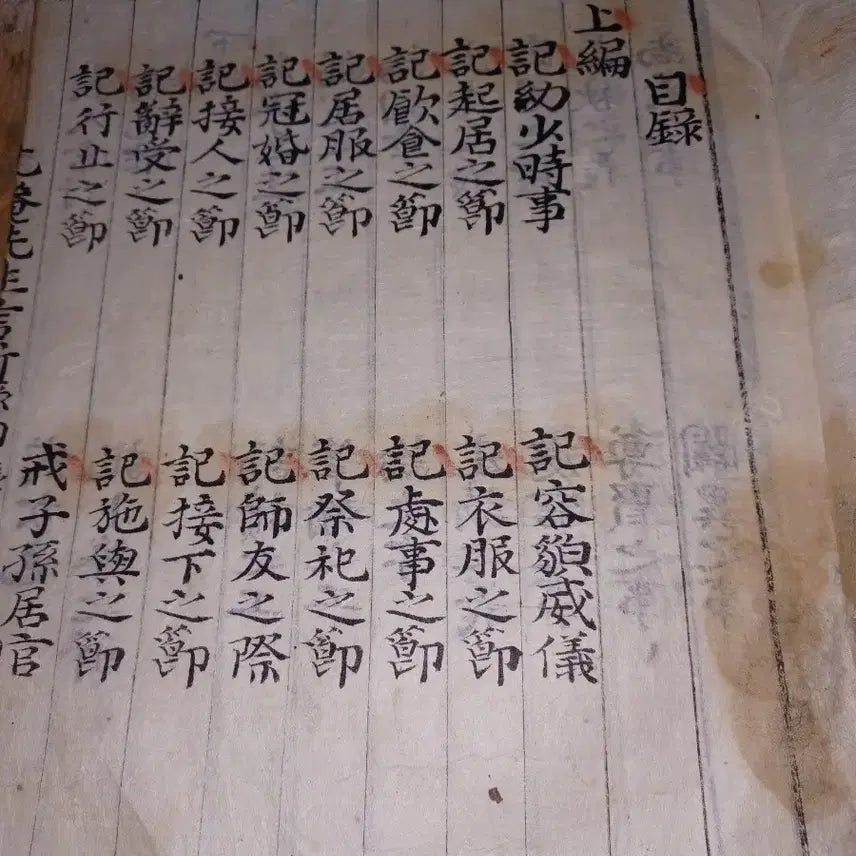 目錄
上編
記幼少時事
記容貌威儀
記起居之節
記衣服之節
記飮食之節
記處事之節
記居服之節
記祭祀之節
記冠婚之節
記師友之際
記接人之節
記接下之節
記辭受之節
記施與之節
記行止之節
戒子孫居官
先生言行